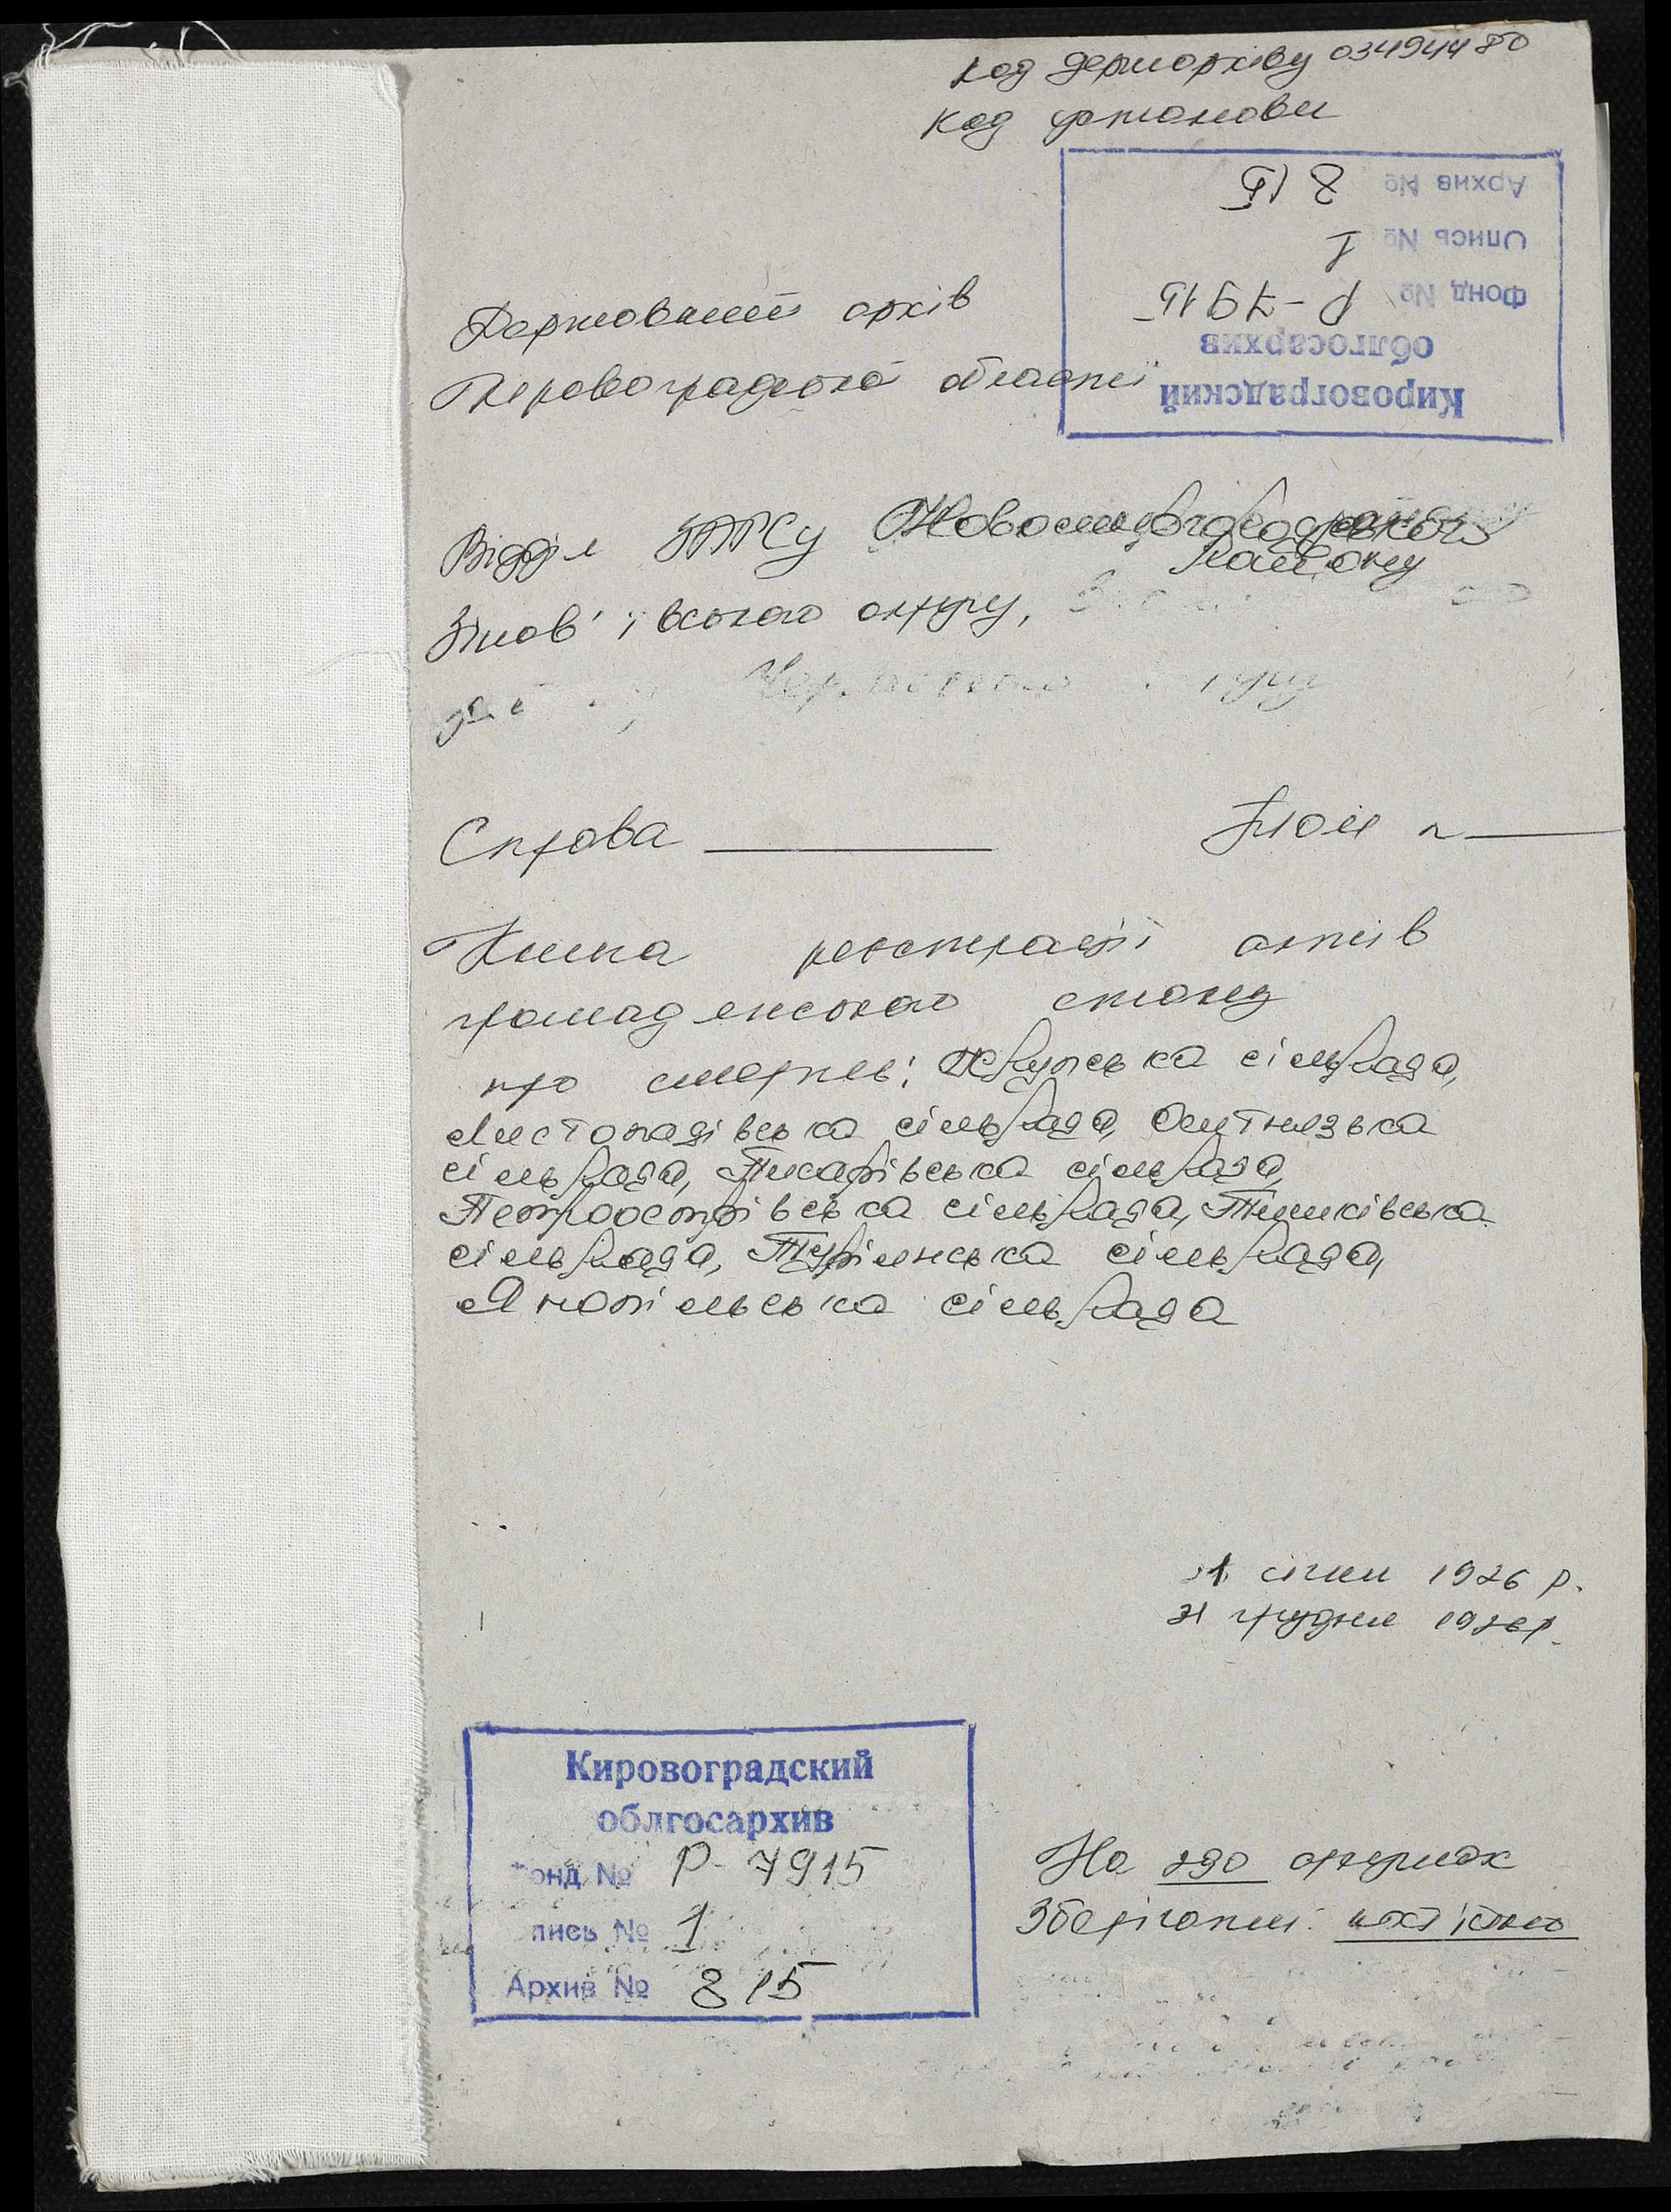 код держархіву 03494480
код установи
Архив № 815
Опись № 1
Фонд № Р-7915
облгосархив
Кировоградский
Державний архів
Кіровоградської області
Відділ ЗАГСу Новомиргородського
району
Зінов'ївського округу,
Справа Том №
Книга реєстрації актів
громадянського стану
про смерть: Журська сільрада,
Листопадівська сільрада, Оситнязька
сільрада, Писарівська сільрада,
Петроострівська сільрада, Пишківська
сільрада, Турійська сільрада,
Янопільська сільрада
1 січня 1926 р.
31 грудня 1926 р.
Кировоградский
облгосархив
Фонд № Р-7915
Опись № 1
Архив № 815
На 290 аркушах
Зберігати: постійно